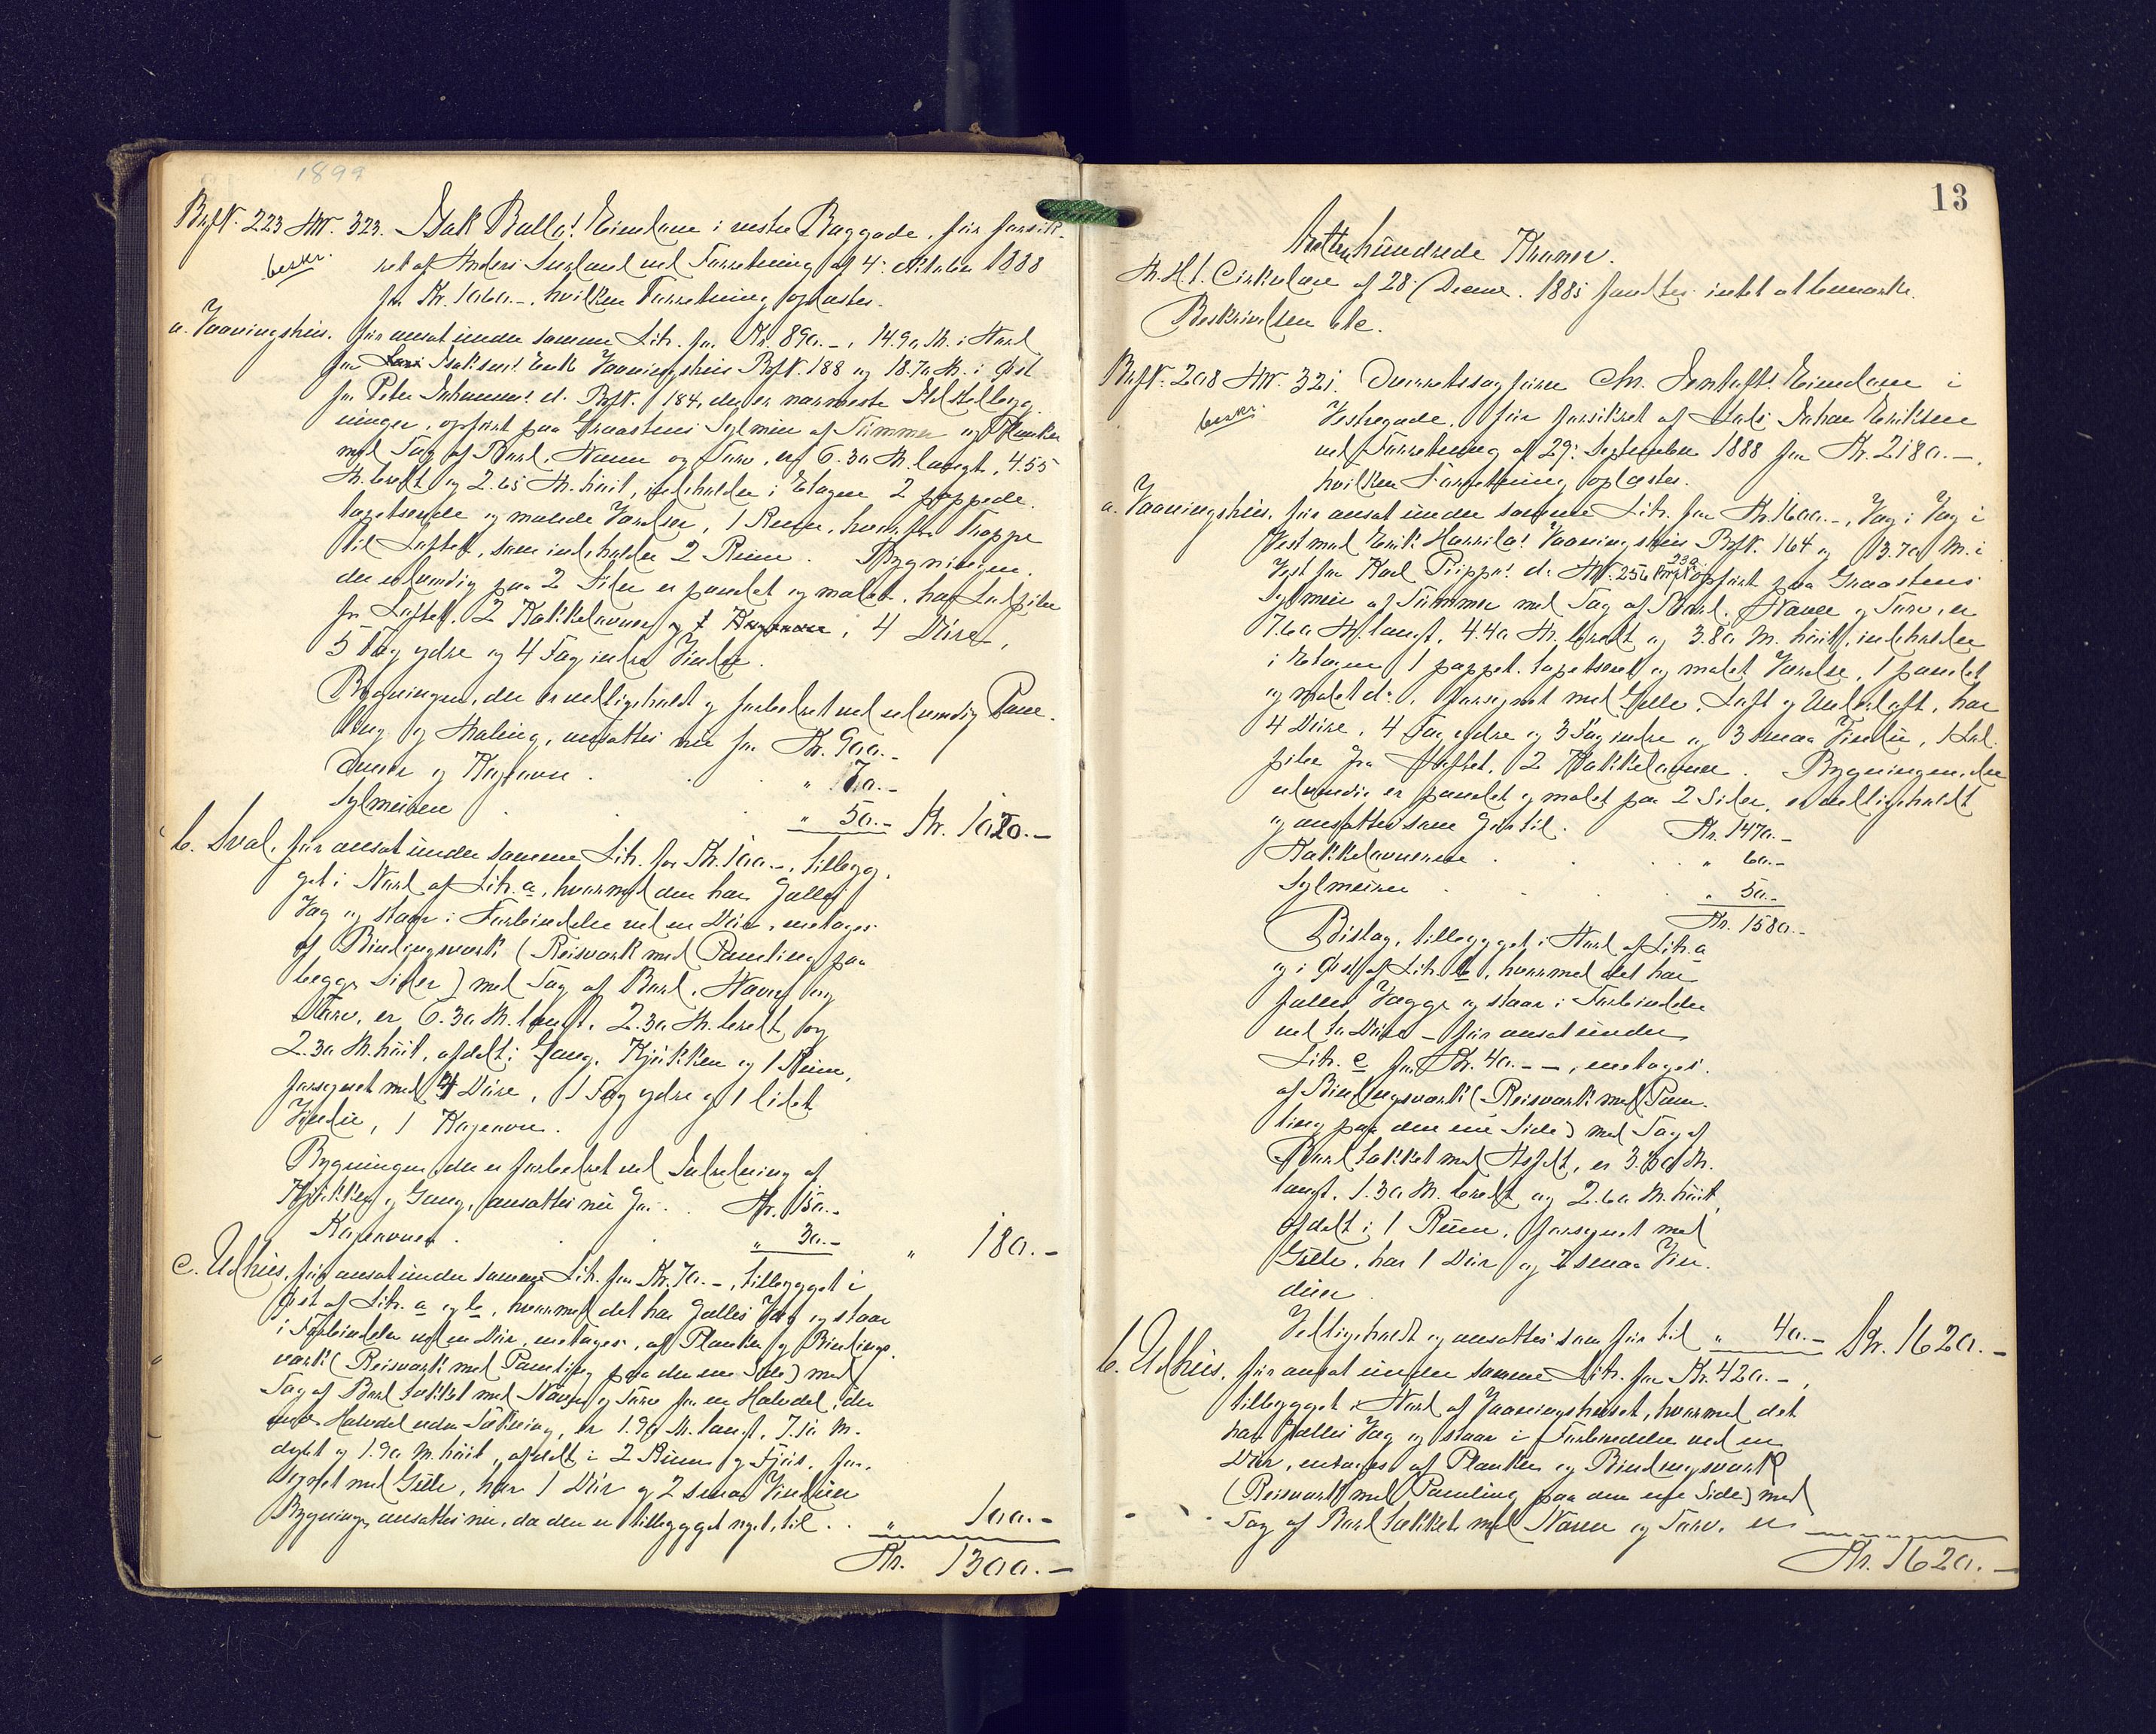 1899
BrfN. 223 MN. 323. Isak Balloˢ Eiendom i vestre Baggade, før forsik-
beskr.
ret af Anders Surland ved Forretning af 4. Oktober 1888
for Kr. 1060.-, hvilken Forretning oplæstes.
a. Vaaningshus, før ansat under samme Litr. for Kr. 890.-, 14.90 M. i Nord
for Isaksenˢ Enke Vaaningshus BrfN. 188 og 18.70 M. i Øst
for Peter Johannesˢ do BrfN. 184, der er nærmeste Ildstedbyg-
ninger, opført paa Graastens Sylmur af Tømmer og Planker
med Tag af Bord, Næver og Torv, er 6.30 M. langt, 4.55
M. bredt og 2.65 M. høit, indeholder i Etagen 2 pappede,
tapetserede og malede Værelser, 1 Rum, hvorfra Trappe
til Loftet, som indeholder 2 Rum. Bygningen,
der udvendig paa 2 Sider er panelet og malet, har Ludpibe
fra Loftet, 2 Kakkelovner, 4 Døre,
5 Fag ydre og 4 Fag indre Vinduer.
Bygningen, der er vedligeholdt og forbedret ved udvendig Pane-
ling og Maling, ansættes nu for Kr. 900.-
Ovner og Kogeovn . . . " 70.-
Sylmuren . . . " 50.- Kr. 1020.-
b. Sval, før ansat under samme Litr. for Kr. 100.-, tilbyg-
get i Nord af Litr. a, hvormed den har fælles
Væg og staar i Forbindelse ved en Dør, modtages
af Bindingsverk (Reisværk med Paneling paa
begge Sider) med Tag af Bord, Næver og
Torv, er 6.30 M. langt, 2.30 M. bredt og
2.30 M. høit, afdelt i Gang, Kjøkken og 1 Rum,
forsynet med 4 Døre, 1 Fag ydre og 1 lidet
Vindu, 1 Kogeovn.
Bygningen, der er forbedret ved Indredning af
Kjøkken og Gang, ansættes nu for . . Kr. 150.-
Kogeovnen . . . " 30.- " 180.-
c. Udhus, før ansat under samme Litr. for Kr. 70.-, tilbygget i
Øst af Litr. a og b, hvormed det har fælles Væg og staar
i Forbindelse ved en Dør, modtages, af Planker og Bindings-
værk (Reisværk med Paneling paa den ene Side) med
Tag af Bord tækket med Næver og Torv for en Halvdel, den
anden Halvdel uden Tækning, er 1.90 M. langt, 7.10 M.
dybt og 1.90 M. høit, afdelt i 2 Rum og Fjøs, for-
synet med Gulv, har 1 Dør og 2 smaa Vinduer
Bygningen ansættes nu, da den er tilbygget nyt, til . . " 100.-
Kr. 1300.-
13
Attenhundrede Kroner.
M. H. t. Cirkulære af 28. Decmr. 1885 fandtes intet at bemærke.
Beskrivelsen etc.
BrfN. 208 MN. 321. Overretssagfører Chr. Jentoftˢ Eiendom i
beskr.
Vestregade, før forsikret af Lars Johan Eriksen
ved Forretning af 29. September 1888 for Kr. 2180.-,
hvilken Forretning oplæstes.
a. Vaaningshus, før ansat under samme Litr. for Kr. 1600.-, Væg i Væg i
Vest med Erik Harrilaˢ Vaaningshus BrfN. 164 og 13.70 M. i
Vest for Karl Piippoˢ do MN. 256 BrfN. 230, opført paa Graastens
Sylmur af Tømmer med Tag af Bord, Næver og Torv, er
7.60 M. langt, 4.40 M. bredt og 3.80 M. høit, indeholder
i Etagen 1 pappet, tapetseret og malet Værelse, 1 panelet
og malet do, forsynet med Gulve, Loft og Underloft, har
4 Døre, 4 Fag ydre og 3 Fag indre og 3 smaa Vinduer, 1 Lud-
pibe fra Loftet, 2 Kakkelovner. Bygningen, der
udvendig er panelet og malet paa 2 Sider, er vedligeholdt
og ansættes som før til . Kr. 1470.-
Kakkelovnerne . . . " 60.-
Sylmuren . . . " 50.-
Kr. 1580.-
Bislag, tilbygget i Nord af Litr. a
og i Øst af Litr. b, hvormed det har
fælles Vægge og staar i Forbindelse
ved to Døre - før ansat under
Litr. c for Kr. 40.- -, modtages
af Bindingsværk (Reisværk med Pane-
ling paa den ene Side) med Tag af
Bord tækket med Asfalt, er 3.60 M.
langt, 1.30 M. bredt og 2.60 M. høit,
afdelt i 1 Rum, forsynet med
Gulv, har 1 Dør og 2 smaa Vin-
duer.
Vedligeholdt og ansættes som før til " 40.- Kr. 1620.-
b. Udhus, før ansat under samme Litr. for Kr. 420.-,
tilbygget i Nord af Vaaningshuset, hvormed det
har fælles Væg og staar i Forbindelse ved en
Dør, modtages af Planker og Bindingsværk
(Reisværk med Paneling paa den ene Side) med
Tag af Bord tækket med Næver og Torv, er
Kr. 1620.-